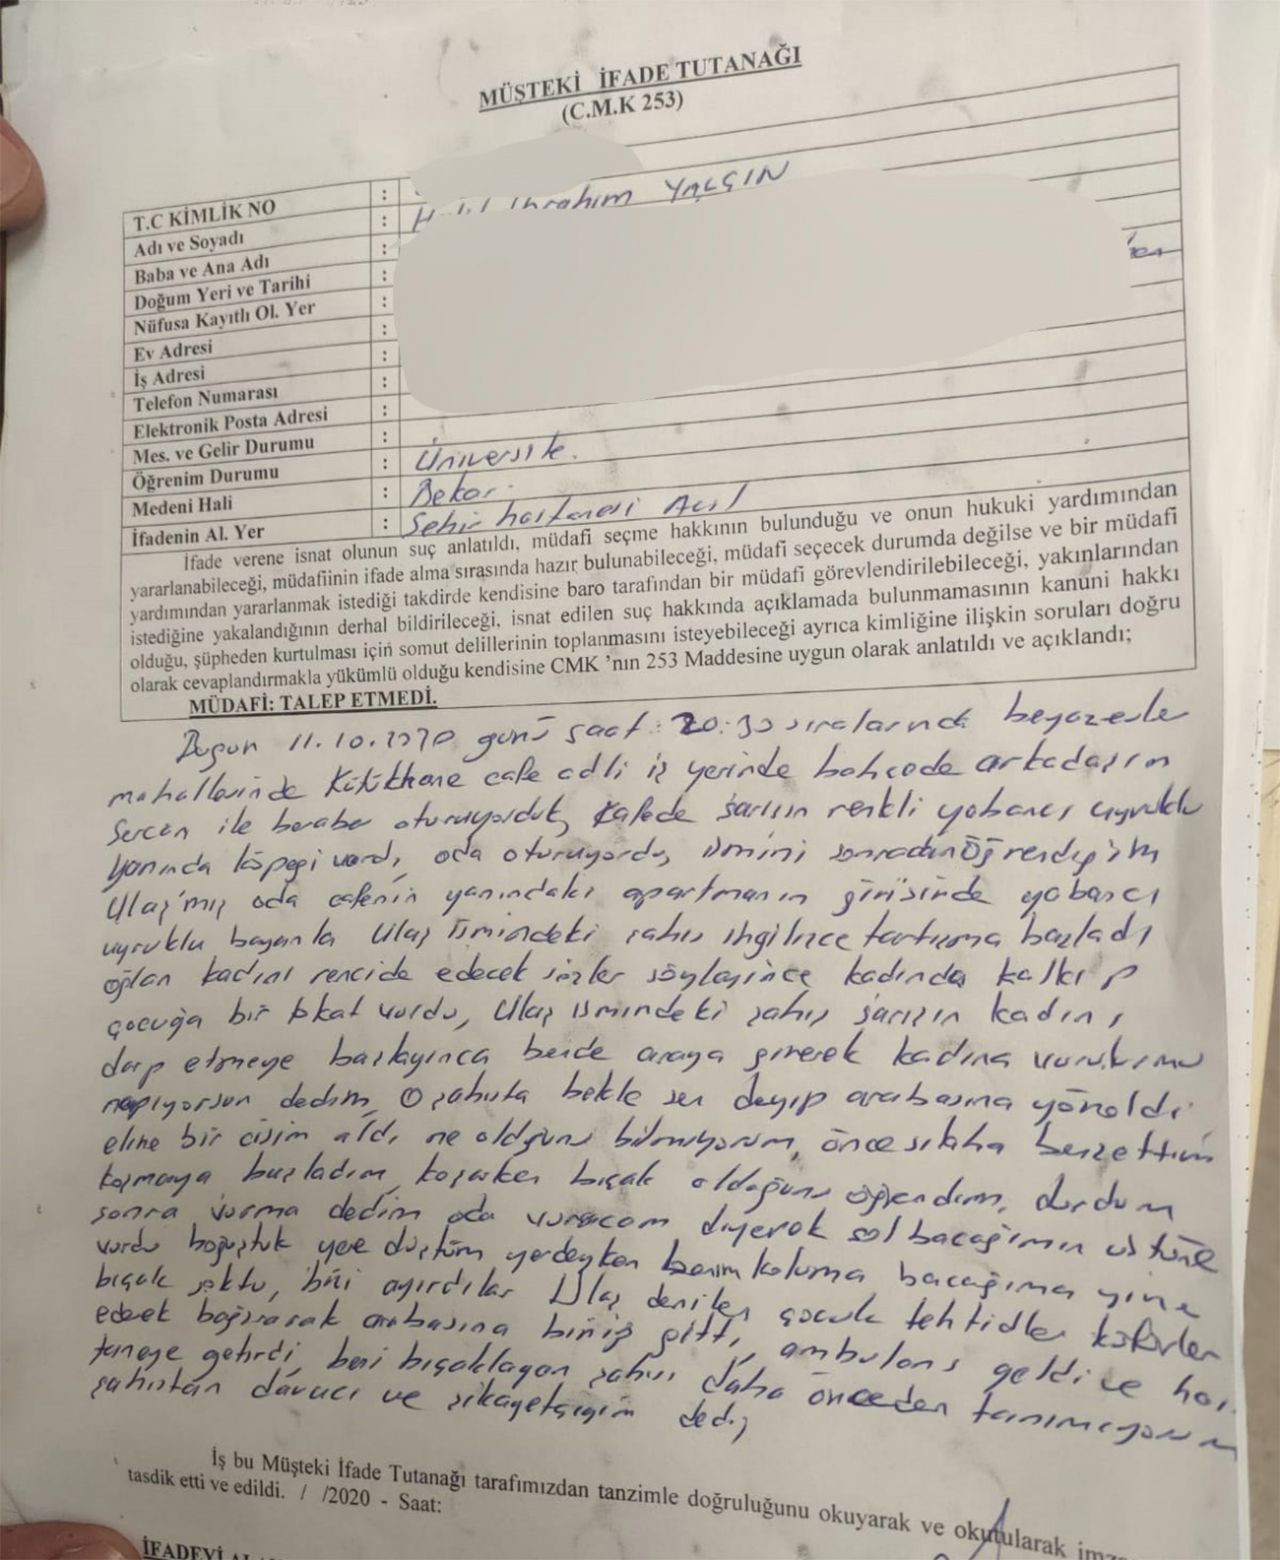 MÜŞTEKİ İFADE TUTANAĞI
(C.M.K 253)
T.C KİMLİK NO :
Adı ve Soyadı : İbrahim YALÇIN
Baba ve Ana Adı :
Doğum Yeri ve Tarihi :
Nüfusa Kayıtlı Ol. Yer :
Ev Adresi :
İş Adresi :
Telefon Numarası :
Elektronik Posta Adresi :
Mes. ve Gelir Durumu :
Öğrenim Durumu : Üniversite.
Medeni Hali : Bekar.
İfadenin Al. Yer : Şehir hastanesi Acil
İfade verene isnat olunun suç anlatıldı, müdafi seçme hakkının bulunduğu ve onun hukuki yardımından
yararlanabileceği, müdafiinin ifade alma sırasında hazır bulunabileceği, müdafi seçecek durumda değilse ve bir müdafi
yardımından yararlanmak istediği takdirde kendisine baro tarafından bir müdafi görevlendirilebileceği, yakınlarından
istediğine yakalandığının derhal bildirileceği, isnat edilen suç hakkında açıklamada bulunmamasının kanuni hakkı
olduğu, şüpheden kurtulması için somut delillerinin toplanmasını isteyebileceği ayrıca kimliğine ilişkin soruları doğru
olarak cevaplandırmakla yükümlü olduğu kendisine CMK 'nın 253 Maddesine uygun olarak anlatıldı ve açıklandı;
MÜDAFİ: TALEP ETMEDİ.
Bugün 11.10.2020 günü saat: 20:30 sıralarında beyazevle
mahallesinde Kütükhane cafe adli iş yerinde bahçede arkadaşım
Sercan ile beraber oturuyorduk, kafede sarışın renkli yabancı uyruklu
yanında köpeği vardı, oda oturuyordu, ismini sonradan öğrendiğim
Ulaş'mış oda cafenin yanındaki apartmanın girişinde yabancı
uyruklu bayanla Ulaş ismindeki şahıs ingilizce tartışma başladı
oğlan kadını rencide edecek sözler söyleyince kadında kalkıp
çocuğa bir tokat vurdu, Ulaş ismindeki şahış sarışın kadını
darp etmeye başlayınca bende araya girerek kadına vurulurmu
napıyorsun dedim, O şahısta bekle sen deyip arabasına yöneldi
eline bir cisim aldı ne olduğunu bilmiyorum, önce silaha benzettim
koşmaya başladım, koşarken bıçak olduğunu öğrendim, durdum
sonra vurma dedim oda vuracam diyerek sol bacağımın üstüne
vurdu boğuştuk yere düştüm yerdeyken benim koluma bacağıma yine
bıçak soktu, bizi ayırdılar Ulaş denilen çocuk tehtidler küfürler
ederek bağırarak arabasına binip gitti, ambulans geldi ve has
taneye getirdi, beni bıçaklayan şahısı daha önceden tanımıyorum
şahıstan davacı ve şikayetçiyim dedi,
İş bu Müşteki İfade Tutanağı tarafımızdan tanzimle doğruluğunu okuyarak ve okutularak imza
tasdik etti ve edildi. / /2020 - Saat: